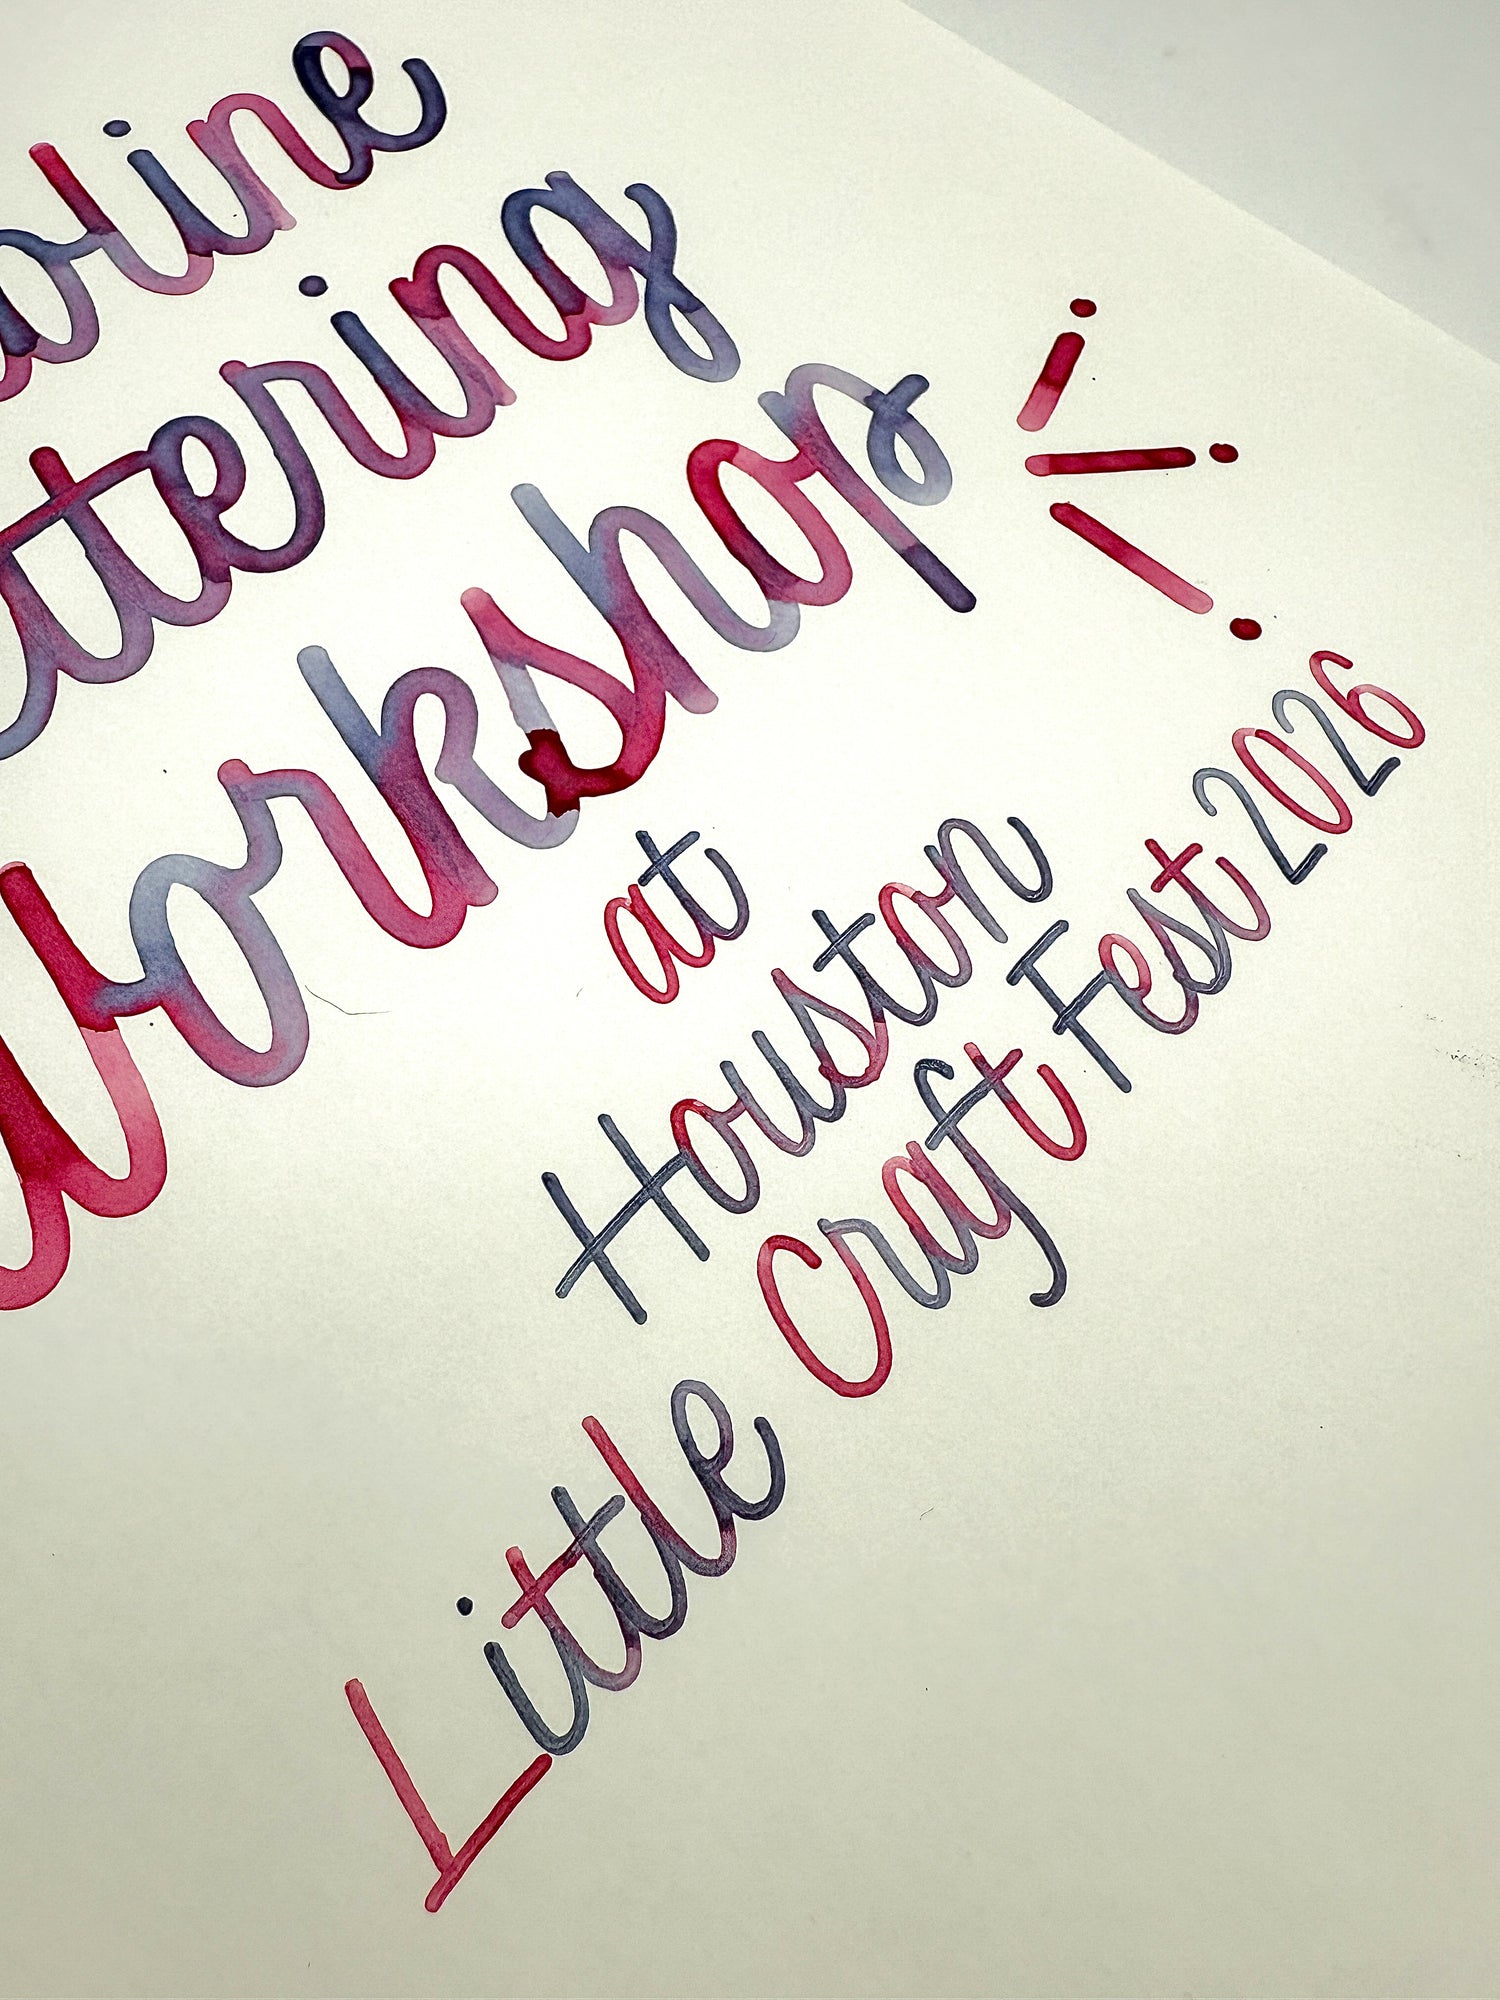 oline
ttering
Workshop
at
Houston
Little Craft Fest 2026